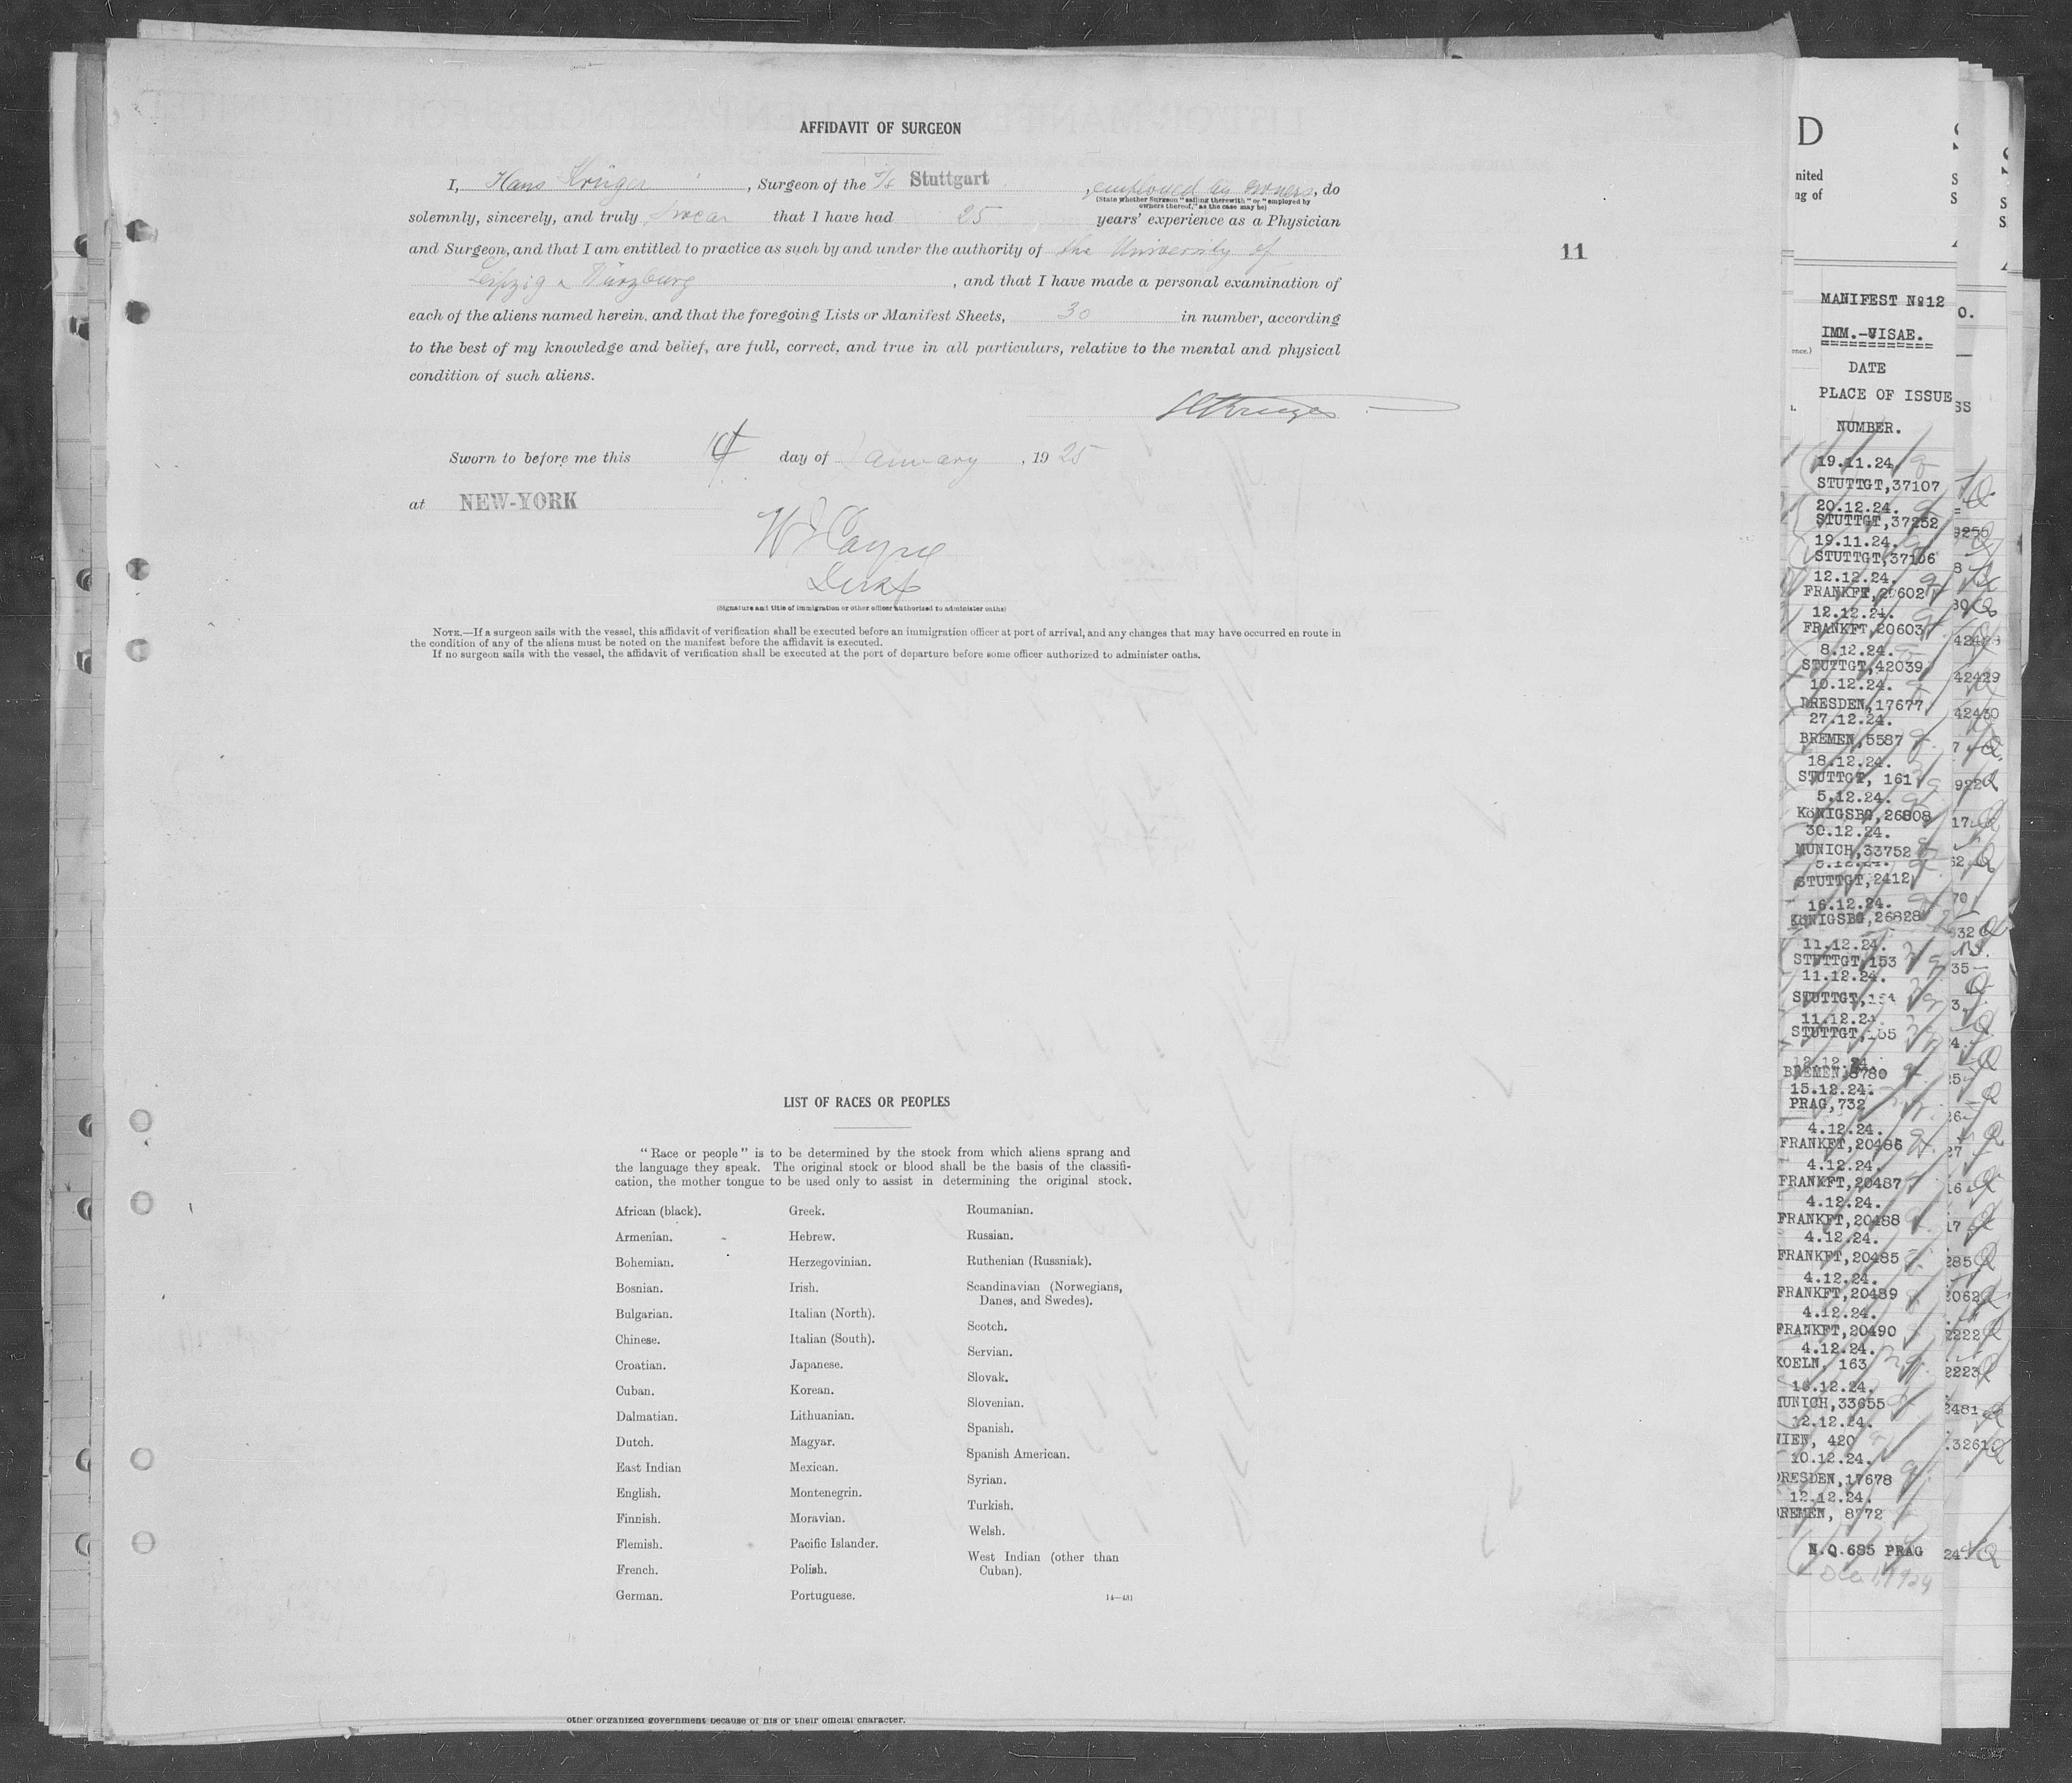 AFFIDAVIT OF SURGEON
I, Hans Krüger, Surgeon of the S/S Stuttgart, employed by owners, do
(State whether Surgeon "sailing therewith" or "employed by
owners thereof," as the case may be)
solemnly, sincerely, and truly swear that I have had 25 years' experience as a Physician
and Surgeon, and that I am entitled to practice as such by and under the authority of the University of
Leipzig & Würzburg, and that I have made a personal examination of
each of the aliens named herein, and that the foregoing Lists or Manifest Sheets, 30 in number, according
to the best of my knowledge and belief, are full, correct, and true in all particulars, relative to the mental and physical
condition of such aliens.
HKrüger
Sworn to before me this day of January, 1925
at NEW-YORK
(Signature and title of immigration or other officer authorized to administer oaths)
NOTE.—If a surgeon sails with the vessel, this affidavit of verification shall be executed before an immigration officer at port of arrival, and any changes that may have occurred en route in
the condition of any of the aliens must be noted on the manifest before the affidavit is executed.
If no surgeon sails with the vessel, the affidavit of verification shall be executed at the port of departure before some officer authorized to administer oaths.
11
LIST OF RACES OR PEOPLES
"Race or people" is to be determined by the stock from which aliens sprang and
the language they speak. The original stock or blood shall be the basis of the classifi-
cation, the mother tongue to be used only to assist in determining the original stock.
African (black).
Armenian.
Bohemian.
Bosnian.
Bulgarian.
Chinese.
Croatian.
Cuban.
Dalmatian.
Dutch.
East Indian
English.
Finnish.
Flemish.
French.
German.
Greek.
Hebrew.
Herzegovinian.
Irish.
Italian (North).
Italian (South).
Japanese.
Korean.
Lithuanian.
Magyar.
Mexican.
Montenegrin.
Moravian.
Pacific Islander.
Polish.
Portuguese.
Roumanian.
Russian.
Ruthenian (Russniak).
Scandinavian (Norwegians,
Danes, and Swedes).
Scotch.
Servian.
Slovak.
Slovenian.
Spanish.
Spanish American.
Syrian.
Turkish.
Welsh.
West Indian (other than
Cuban).
14—431
other organized government because of his or their official character.
D
nited
ng of
MANIFEST No12
IMM.-VISAE.
DATE
PLACE OF ISSUE
NUMBER.
19.11.24.
STUTTGT,37107
20.12.24.
STUTTGT,37252
19.11.24.
STUTTGT,37106
12.12.24.
FRANKFT,20602
12.12.24.
FRANKFT,20603
8.12.24.
STUTTGT,42039
10.12.24.
DRESDEN,17677
27.12.24.
BREMEN,5587
18.12.24.
STUTTGT, 161
5.12.24.
KöNIGSBG,26808
30.12.24.
MUNICH,33752
STUTTGT,2412
16.12.24.
KöNIGSBG,26828
11.12.24.
STUTTGT,153
11.12.24.
STUTTGT,154
11.12.24.
STUTTGT,155
12.12.24.
BREMEN,8780
15.12.24.
PRAG,732
4.12.24.
FRANKFT,20486
4.12.24.
FRANKFT,20487
4.12.24.
FRANKFT,20488
4.12.24.
FRANKFT,20485
4.12.24.
FRANKFT,20489
4.12.24.
FRANKFT,20490
4.12.24.
KOELN, 163
16.12.24.
MUNICH,33655
12.12.24.
WIEN, 420
10.12.24.
DRESDEN,17678
12.12.24.
BREMEN, 8772
N.Q.695 PRAG